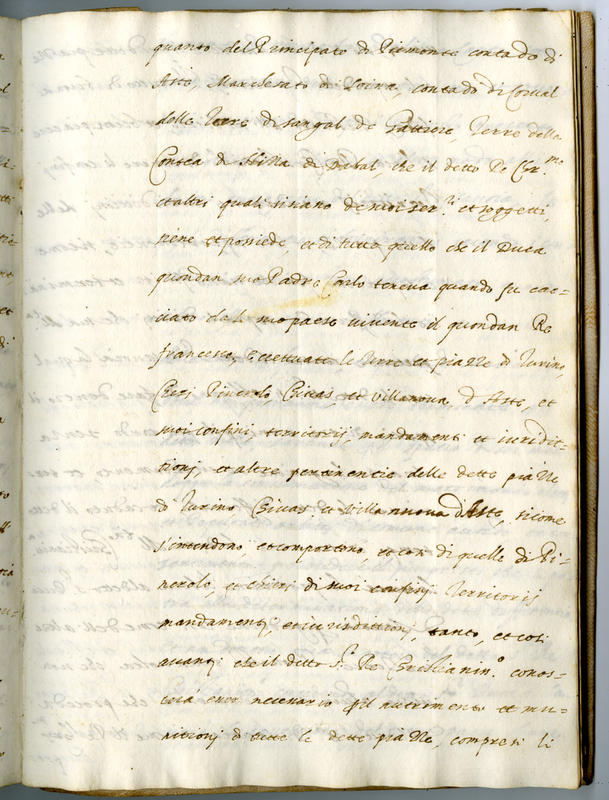 quanto del Principato di Piemonte contado di
Asti, Marchesato di Coina, contado di Corual
delle Terre di sangal de Pattiere, Terre della
Contea di Stilla di Dabal, che il detto Re Chr.mo
et altri quali siuano de suoi ser.ri et soggetti,
tiene et possiede, et di tutto quello che il Duca
quondan suo Padre Carlo teneva quando fu cac=
ciato del suo paese viuente il quondan Re
francesco, eccettuate le Terre et piazze di Turino,
Chieri Pinerolo, Chiuas, et Villanoua d'Aste, et
suoi confini, territorij, mandamenti et iuridit=
tionj et altre pertinentie delle dette piazze
di Turino Chiuas et Villa nuoua d'Aste, sicome
s'intendono, et comportono et cosi di quelle di Pi=
nerolo, et Chieri di suoi confinj Territorij
mandamentj, et iuriudittionj, tanto, et cosi
auanzj che il detto S.r Re Christianin.o conos=
cerà esser necessario pil nutrimento et mu=
nitionj di tutte le dette piazze, compresi li